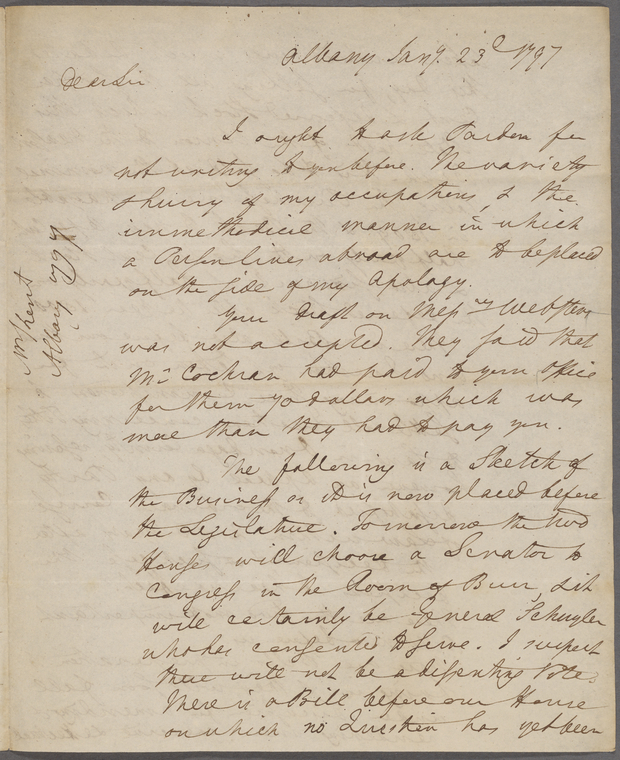 Albany Jany. 23d 1797
Dear Sir
I ought to ask Pardon for
not writing to you before. The variety
& hurry of my occupations, & the
immethodical manner in which
a Person lives abroad are to be placed
on the side of my Apology.
Your Draft on Messrs Websters
was not accepted. They said that
Mr Cochran had paid to your Office
for them 70 dollars which was
more than they had to pay you.
The following is a Sketch of
the Business as it is now placed before
the Legislature. Tomorrow the two
Houses will choose a Senator to
Congress in the Room of Burr, & it
will certainly be General Schuyler
who has consented to serve. I suspect
there will not be a dissenting Vote.
There is a Bill before our House
on which no Question has yet been
Mr Kent
Albany 1797